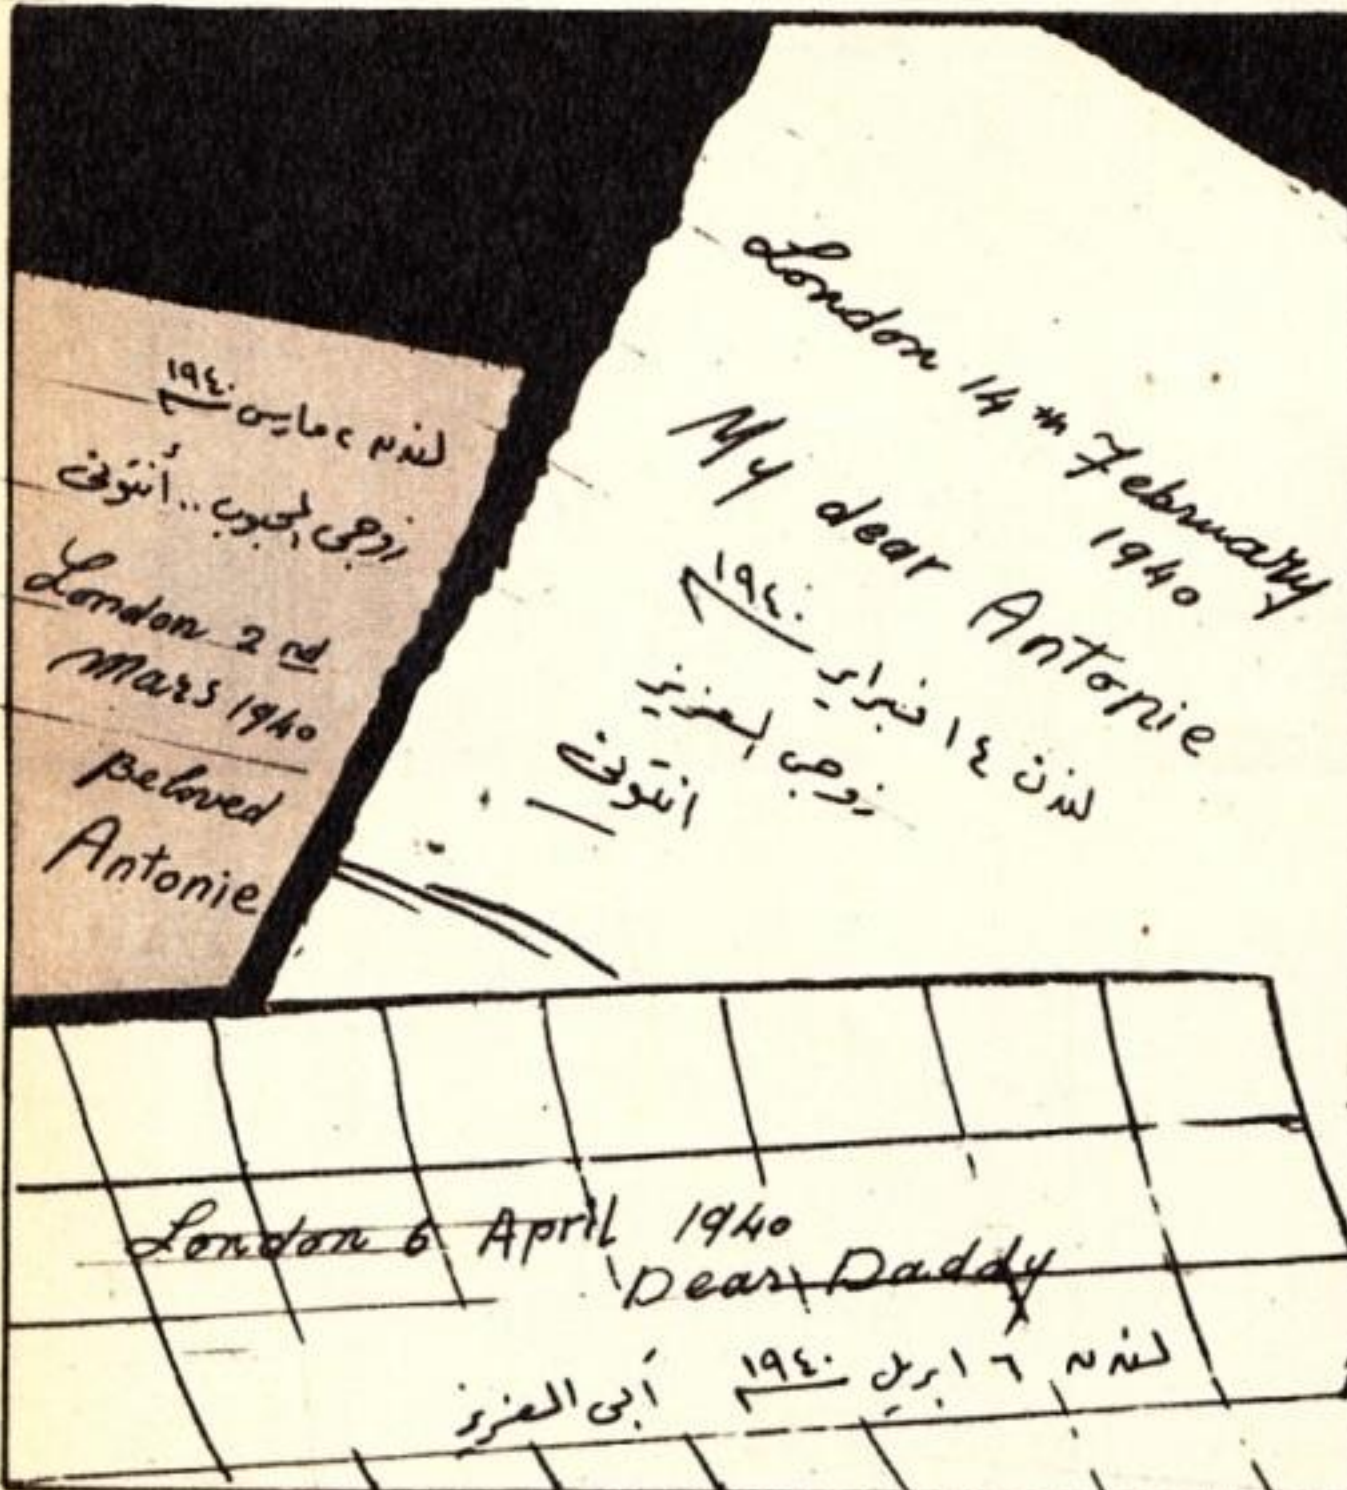 لندن ٢ مارس ١٩٤٠
زوجى المحبوب .. أنتونى
London 2nd
Mars 1940
Beloved
Antonie
London 14th February
1940
My dear Antonie
لندن ١٤ فبراير ١٩٤٠
زوجى العزيز
انتونى
London 6 April 1940
Dear Daddy
لندن ٦ ابريل ١٩٤٠ أبى العزيز